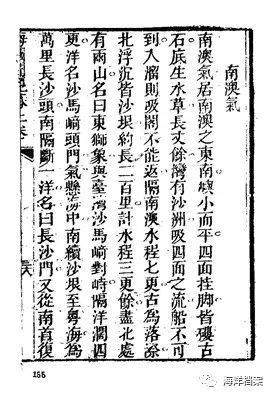 南澳氣
南澳氣居南澳之東南嶼小而平四面挂脚皆嶁古
石底生水草長丈餘灣有沙洲吸四面之流船不可
到入溜則吸擱不能返隔南澳水程七更古為落漈
北浮沉皆沙垠約長二百里計水程三更餘盡北處
有兩山名曰東獅象與臺灣沙馬崎對峙隔洋濶四
更洋名沙馬崎頭門氣懸海中南續沙垠至粵海為
萬里長沙頭南隔斷一洋名曰長沙門又從南首復
155
海洋档案